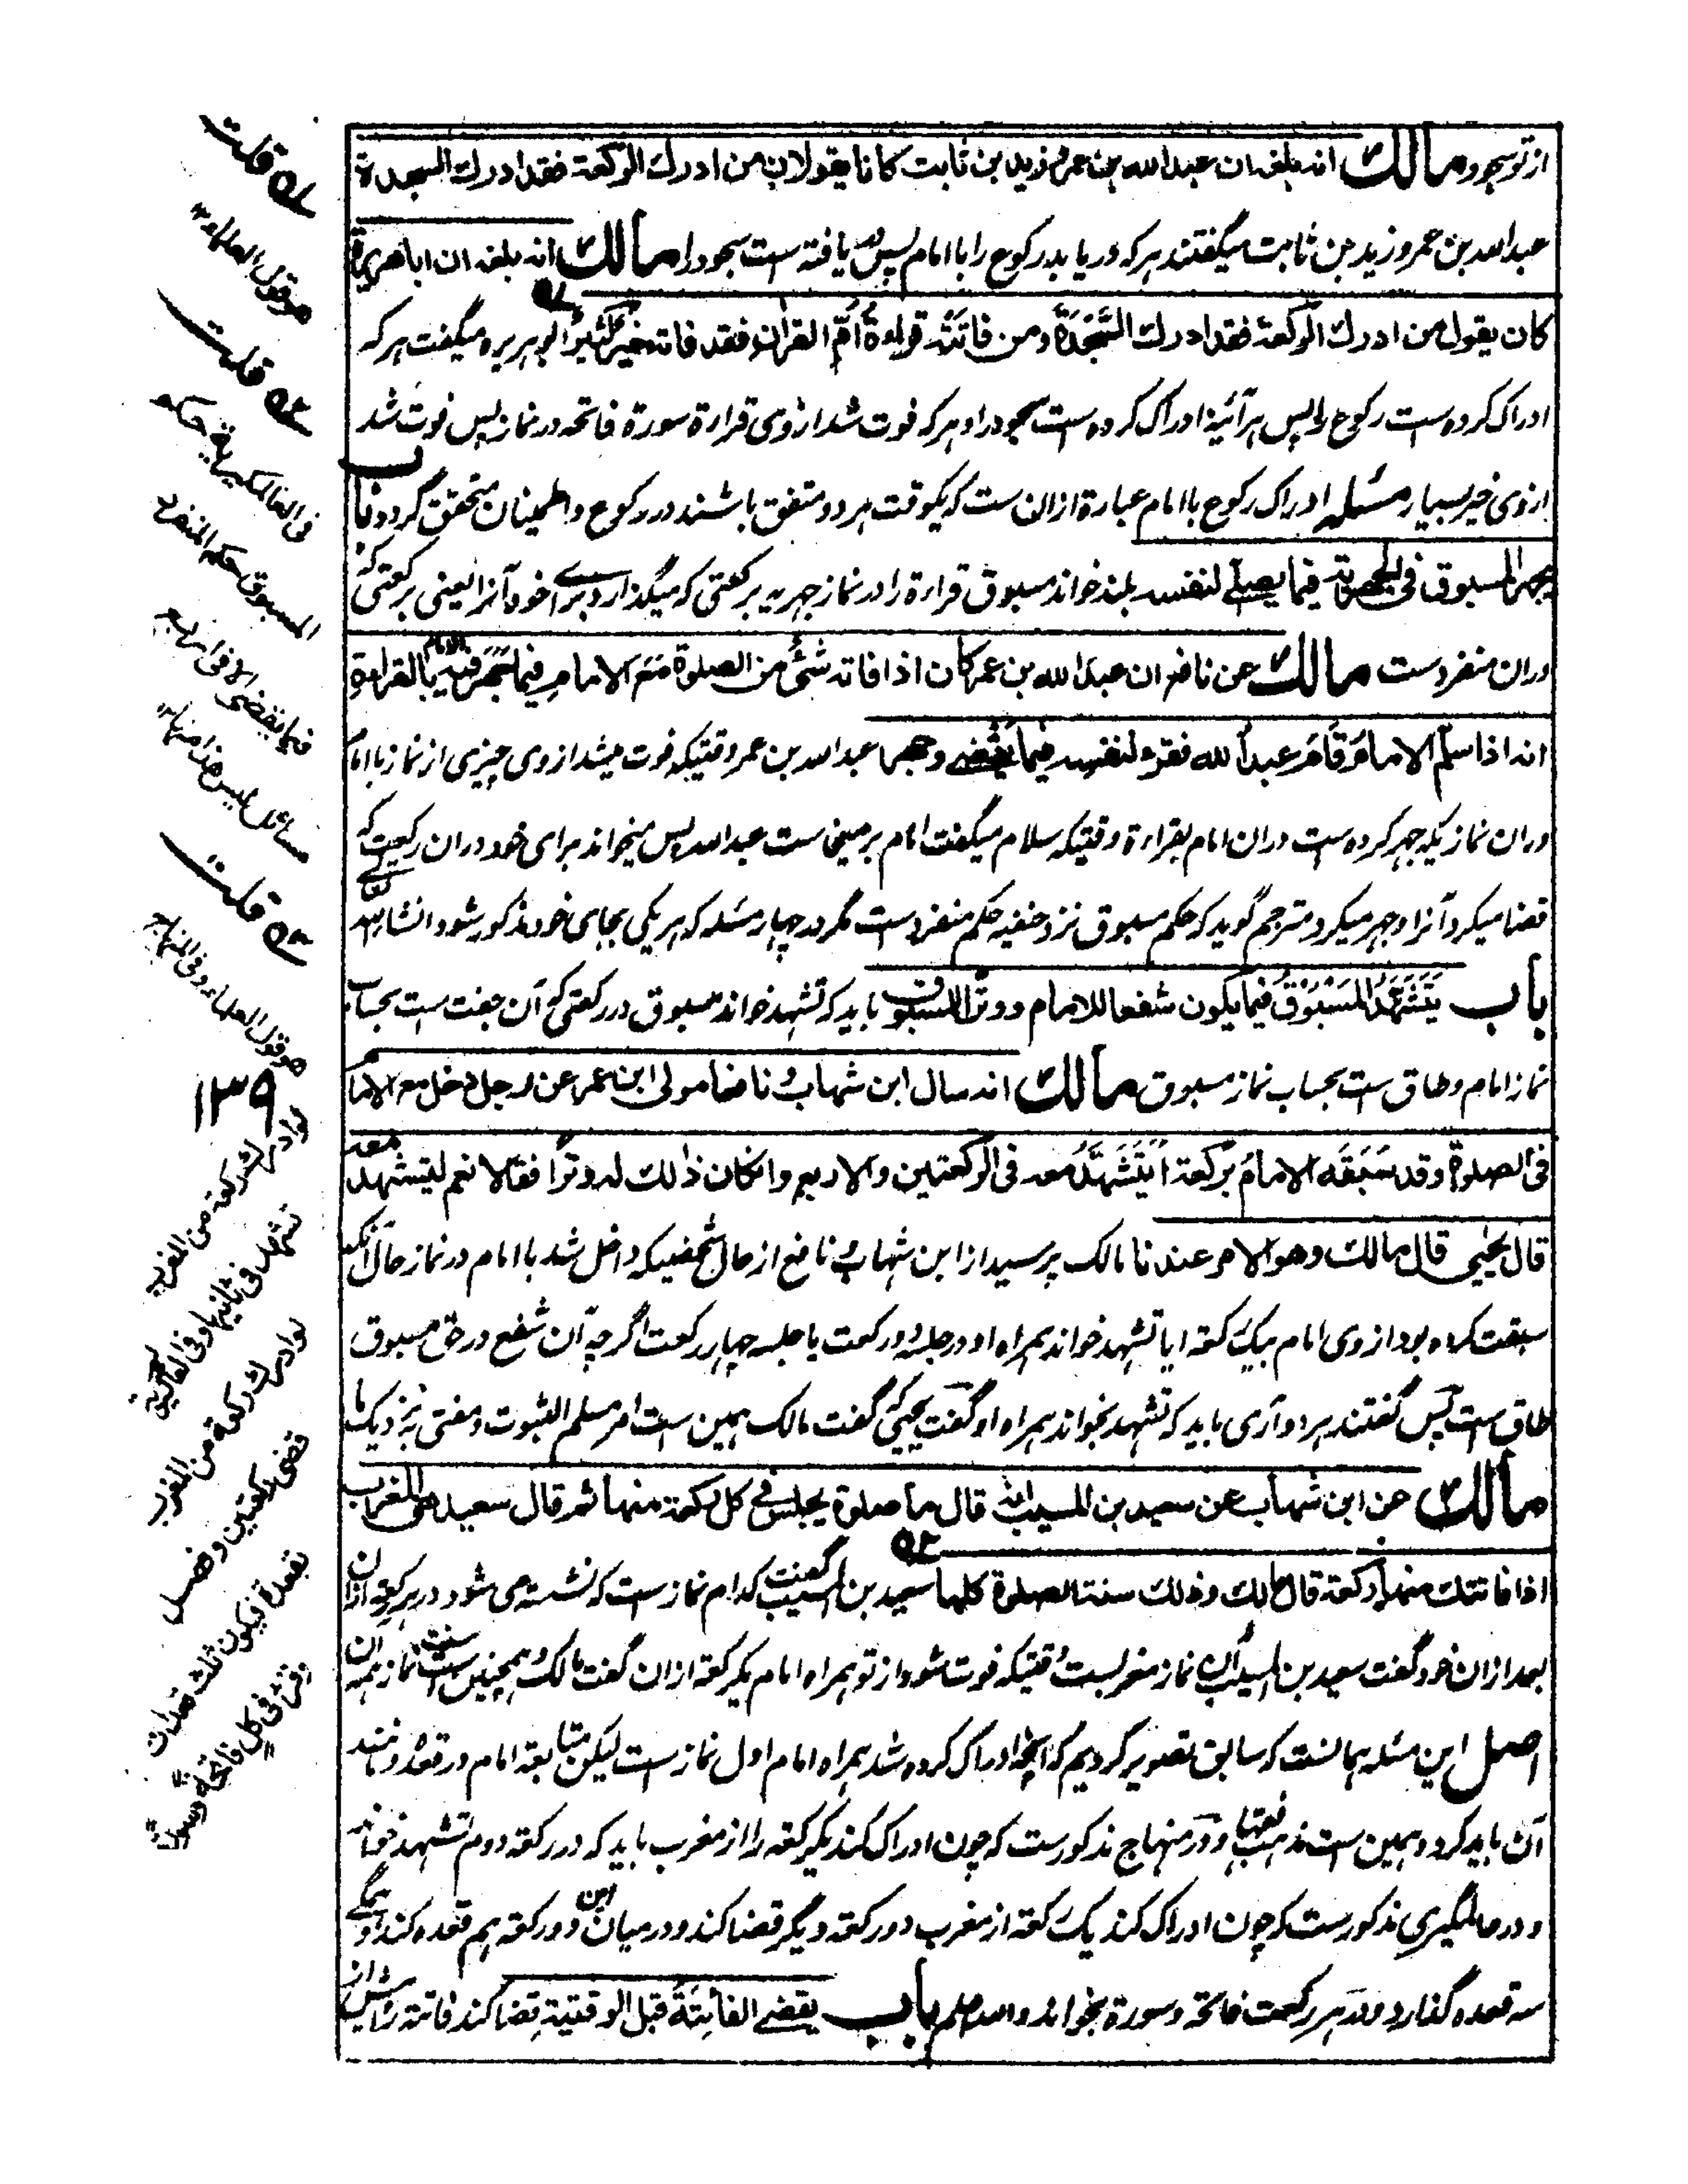 از تو سجود مالك انه بلغه ان عبدالله بن عمر و زيد بن ثابت كانا يقولان من ادرك الركعة فقد ادرك السجدة
عبدالله بن عمر و زید بن ثابت میگفتند هر که دریابد رکوع را با امام پس یافته است سجود را مالك انه بلغه ان اباهريرة
كان يقول من ادرك الركعة فقد ادرك السَّجْدَةَ ومن فاتَتْه قراءةُ اُمِّ القرآن فقد فاته خَيْرٌ كَثِيرٌ ابو هریره میگفت هر که
ادراک کرده است رکوع را پس هر آئینه ادراک کرده است سجود را و هر که فوت شد از وی قراءة سورة فاتحه در نماز پس فوت شد
از وی خیر بسیار مسئله ادراک رکوع با امام عبارة ازان ست که یکوقت هر دو متفق باشند در رکوع و اطمینان متحقق گردد باب
يجهر المسبوق فى الجهرية فيما يصلى لنفسه بلند خواند مسبوق قراءة را در نماز جهریه برکعتی که میگذارد برای خود آنرا یعنی برکعتی که
دران منفردست مالك عن نافع ان عبدالله بن عمر كان اذا فاته شئ من الصلوة مع الامام فيما جهر فيه الامام بالقراءة
انه اذا سلّم الامام قام عبدالله فقرء لنفسه فيما يقضى وجهر عبدالله بن عمر وقتیکه فوت میشد از وی چیزی از نماز با امام
دران نماز یکه جهر کرده ست دران امام بقراءة وقتیکه سلام میگفت امام بر میخاست عبدالله پس میخواند برای خود دران رکعت که
قضا میکرد آنرا و جهر میکرد مترجم گوید که حکم مسبوق نزد حنفیه حکم منفردست مگر در چهار مسئله که هر یکی بجای خود مذکور شود انشاءالله تعالی
باب يَتَشَهَّدُ المَسْبُوْقُ فيما يكون شفعا للامام ووترا للمسبوق باید که تشهد خواند مسبوق در رکعتی که آن جفت ست بحساب
نماز امام و طاق ست بحساب نماز مسبوق مالك انه سال ابن شهاب ونافعا مولى ابن عمر عن رجل دخل مع الامام
فى الصلوة وقد سَبَقَه الامامُ بركعة اَيَتَشَهَّدُ معه فى الركعتين والاربع وان كان ذالك له وترا فقالا نعم ليتشهد معه
قال يحيى قال مالك وهو الامر عندنا مالک پرسید از ابن شهاب و نافع از حال شخصیکه داخل شد با امام در نماز حال آنکه
سبقت کرده بود از وی امام بیک رکعة ایا تشهد خواند همراه او در جلسه دو رکعت یا جلسه چهار رکعت اگرچه آن شفع در حق مسبوق
طاق ست پس گفتند هر دو آری باید که تشهد بخواند همراه او گفت یحیی گفت مالک همین ست امر مسلم الثبوت و مفتی به نزدیک ما
مالك عن ابن شهاب عن سعيد بن المسيب انه قال ما صلوة يجلس فى كل ركعة منها ثم قال سعيد هى المغرب
اذا فاتتك منها ركعة قال مالك وذلك سنة الصلوة كلها سعید بن المسیب گفت کدام نماز ست که نشسته می شود در هر رکعة ازان
بعد ازان خود گفت سعید بن المسیب آن نماز مغربست وقتیکه فوت شود از تو همراه امام یک رکعة ازان گفت مالک و همچنین ست سنت نماز همه آن
اصل این مسئله همانست که سابق تصویر کردیم که آنچه ادراک کرده شد همراه امام اول نماز ست لیکن متابعة امام در قعده و مانند
آن باید کرد و همین ست مذهب فقها و در منهاج مذکورست که چون ادراک کند یک رکعة را از مغرب باید که در رکعة دوم تشهد خواند
و در عالمگیری مذکورست که چون ادراک کند یک رکعة از مغرب دو رکعة دیگر قضا کند و در میان این دو رکعة هم قعده کند و همگی
سه قعده گذارد و در هر رکعت فاتحه و سورة بخواند والله اعلم باب يقضى الفائتة قبل الوقتية قضا کند فائتة را پیش از
۵۱ قلت
هو قول العلماء ۱۲
۵۲ قلت
فى العالمگيرية حكم
المسبوق حكم المنفرد
فيما يقضى الا فى اربع
مسائل ليس هذا منها ۱۲
۵۳ قلت
هو قول العلماء وفى المنهاج
۱۳۹
لو ادرك ركعة من المغرب
تشهد فى ثانيتها وفى العالمگيرية
لو ادرك ركعة من المغرب
قضى ركعتين وفصل
بقعدة فيكون ثلث قعدات
وقرأ فى كل فاتحة وسورة